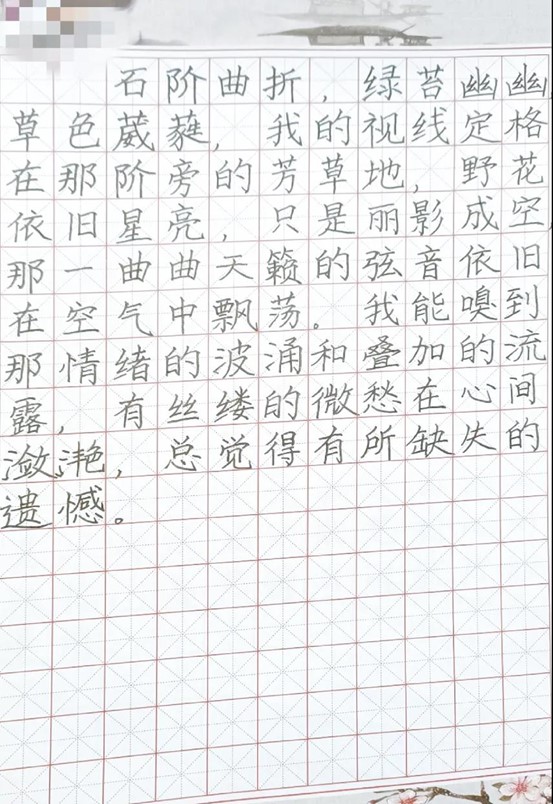 石阶曲折，绿苔幽幽，
草色葳蕤，我的视线定格
在那阶旁的芳草地，野花
依旧星亮，只是丽影成空，
那一曲曲天籁的弦音依旧
在空气中飘荡。我能嗅到
那情绪的波涌和叠加的流
露，有丝缕的微愁在心间
潋滟，总觉得有所缺失的
遗憾。